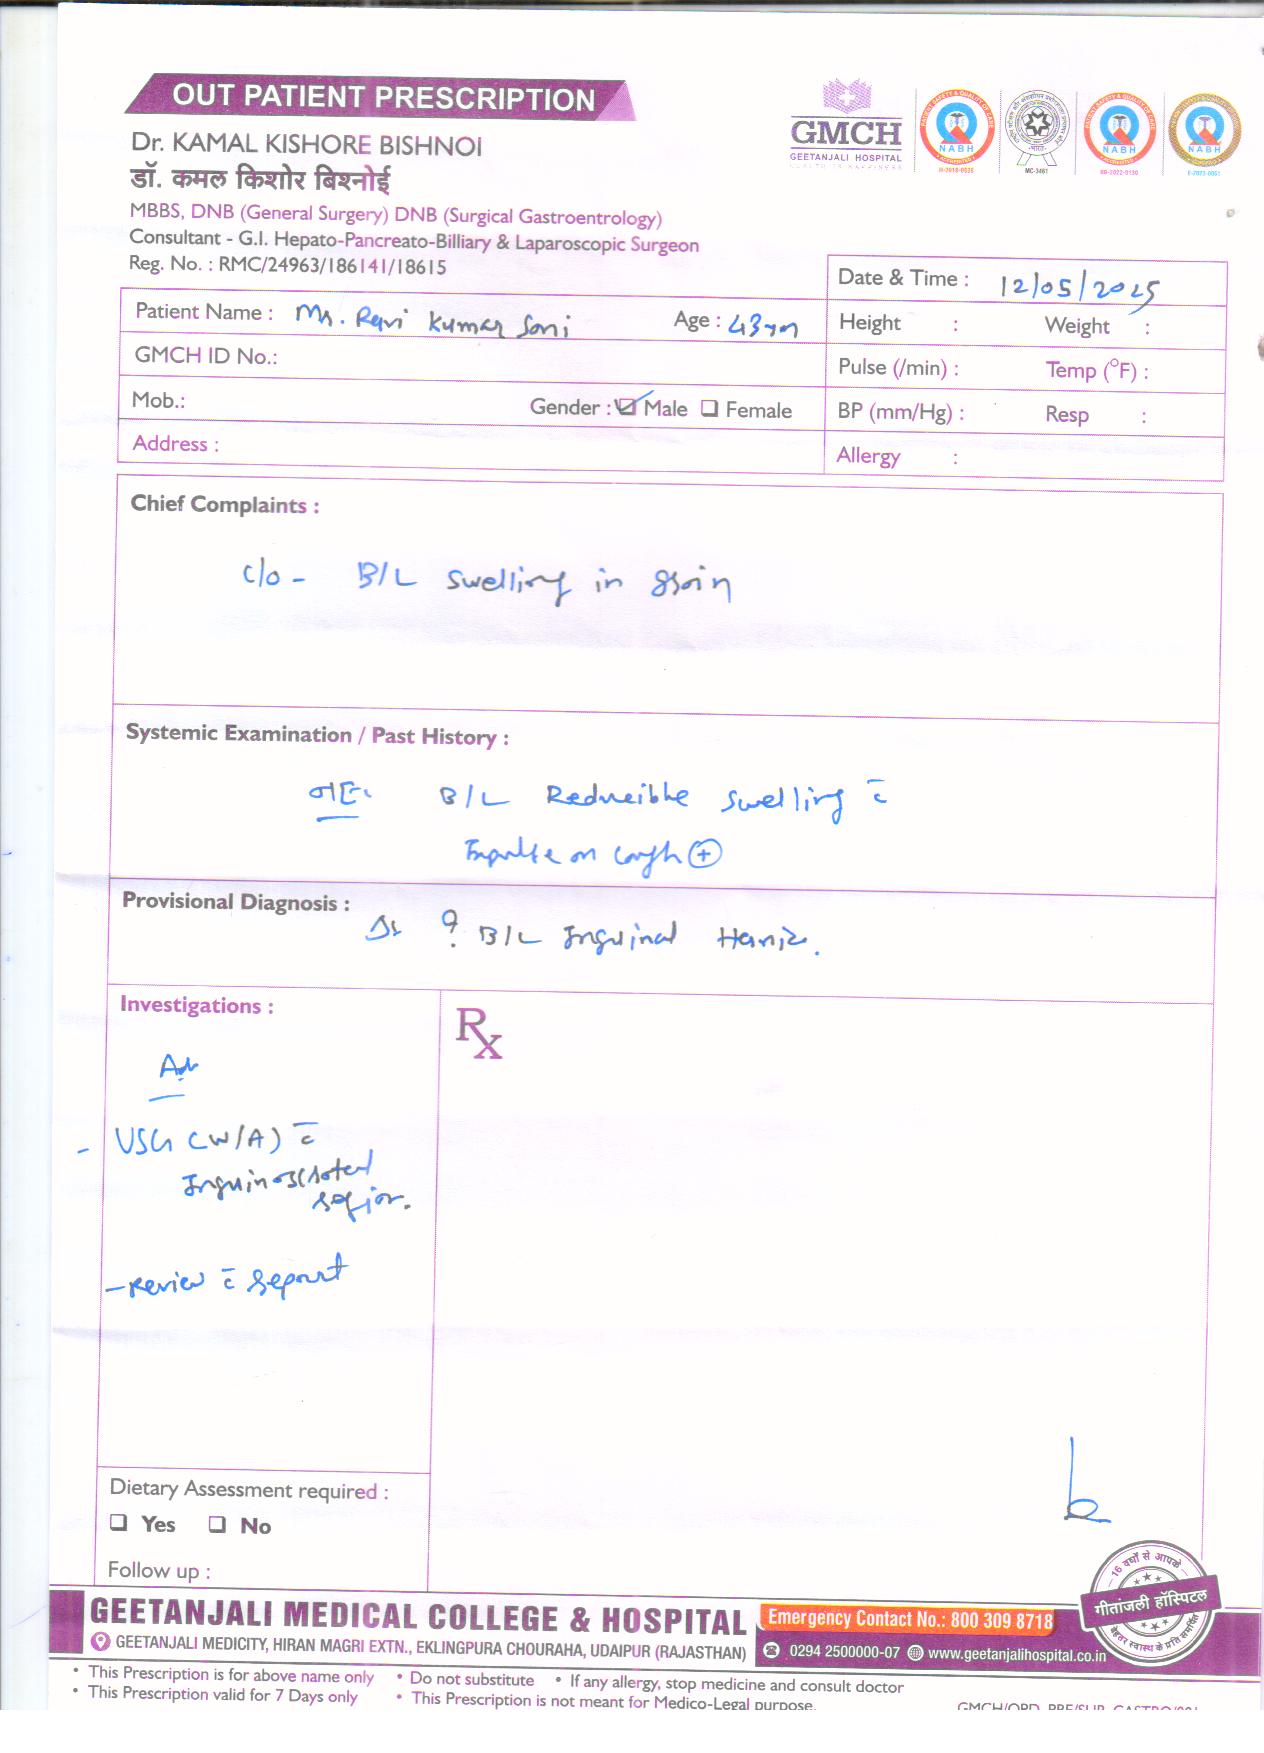 OUT PATIENT PRESCRIPTION
Dr. KAMAL KISHORE BISHNOI
डॉ. कमल किशोर बिश्नोई
MBBS, DNB (General Surgery) DNB (Surgical Gastroentrology)
Consultant - G.I. Hepato-Pancreato-Billiary & Laparoscopic Surgeon
Reg. No. : RMC/24963/186141/18615
GMCH
GEETANJALI HOSPITAL
NABH
H-2018-0535
MC-3461
NABH
NABH
Date & Time : 12/05/2025
Patient Name : Mr. Ravi Kumar Soni Age : 43 yrs
Height : Weight :
GMCH ID No.:
Pulse (/min) : Temp (°F) :
Mob.: Gender : Male Female
BP (mm/Hg) : Resp :
Address :
Allergy :
Chief Complaints :
c/o - B/L swelling in groin
Systemic Examination / Past History :
B/L Reducible swelling c̄
Impulse on cough +
Provisional Diagnosis :
? B/L Inguinal Hernia.
Investigations :
Rx
Adv
- USG (W/A) c̄
Inguinoscrotal
region.
- Review c̄ report
Dietary Assessment required :
Yes No
Follow up :
16 वर्षों से आपके
गीतांजली हॉस्पिटल
बेहतर स्वास्थ के प्रति समर्पित
GEETANJALI MEDICAL COLLEGE & HOSPITAL
GEETANJALI MEDICITY, HIRAN MAGRI EXTN., EKLINGPURA CHOURAHA, UDAIPUR (RAJASTHAN)
Emergency Contact No.: 800 309 8718
0294 2500000-07 www.geetanjalihospital.co.in
• This Prescription is for above name only • Do not substitute • If any allergy, stop medicine and consult doctor
• This Prescription valid for 7 Days only • This Prescription is not meant for Medico-Legal purpose.